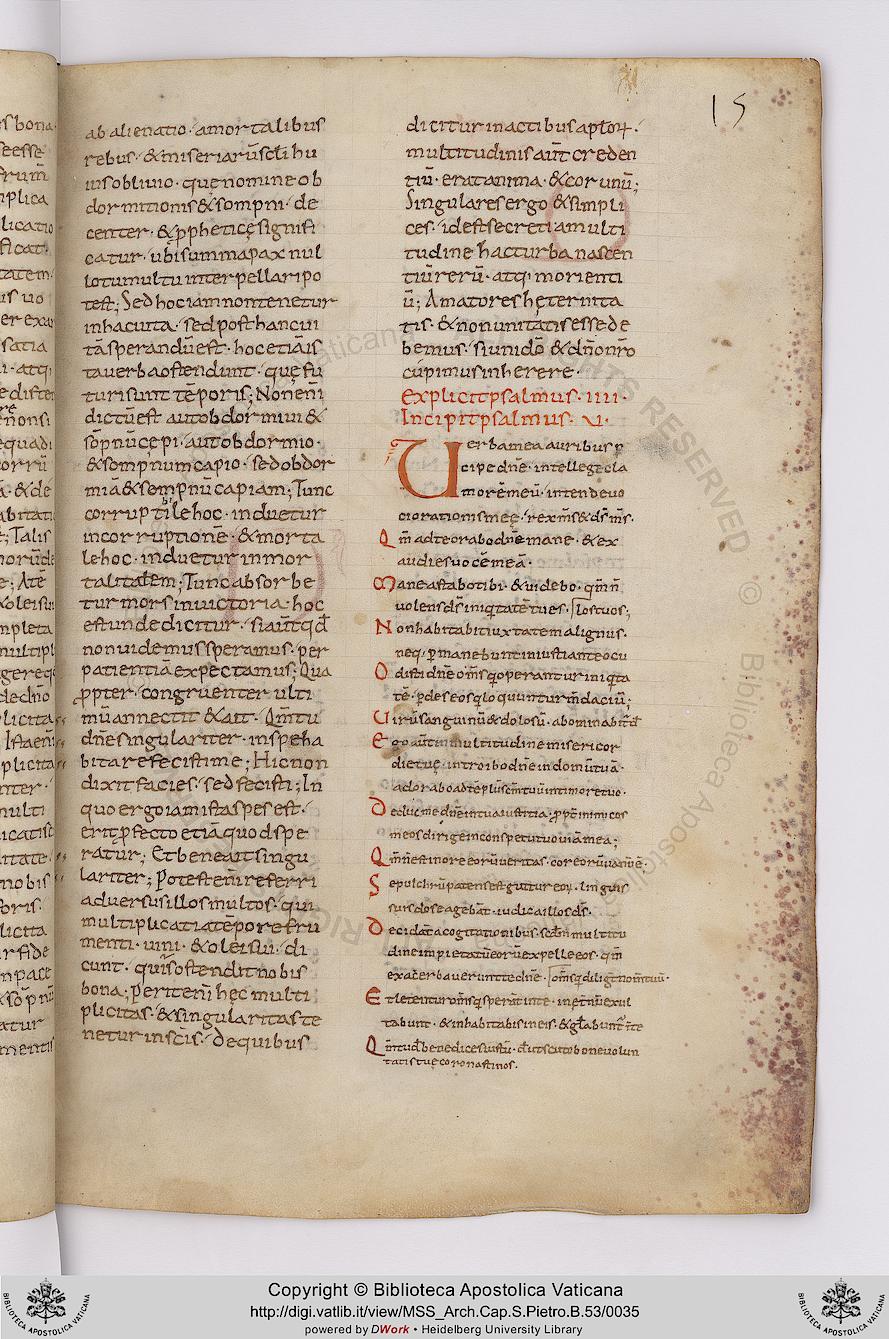 15
ab alienatio · amortalibus
rebus · & miseriarū scīli hu
ius oblivio · quę nomine ob
dormitionis & sompni · de
center · & pphetice signifi
catur · ubi summa pax nul
lo tumultu interpellari po
test; Sed hoc iam non tenetur
in hac uita · sed post hanc ui
tā sperandū est · hoc etiā is
ta verba ostendunt · quę fu
turi sunt tēporis; Non enī
dictū est aut obdormiui &
sōpnū cepi · aut obdormio ·
& sompnum capio · sed obdor
miā & sompnū capiam; Tunc
corruptibile hoc · induetur
incorruptione · & morta
le hoc · induetur inmor
talitatem; Tunc absorbe
tur mors in uictoria · hoc
est unde dicitur · si aūt qđ
non uidemus speramus · per
patientiā expectamus; Qua
ppter · congruenter ulti
mū annectit & ait · Qm̄ tu
dn̄e singulariter · in spe ha
bitare fecisti me; Hic non
dixit facies · sed fecisti; In
quo ergo iam ista spes est ·
erit pfecto etiā quod spe
ratur; Et bene ait singu
lariter; Potest enī referri
aduersus illos multos · qui
multiplicati a tēpore fru
menti · uini · & olei sui · di
cunt · quis ostendit nobis
bona; Perit enī hęc multi
plicitas · & singularitas te
netur in scīs · de quibus
dicitur in actibus aplōꝝ ·
multitudinis aūt creden
tiū · erat anima · & cor unū;
Singulares ergo & simpli
ces · id est secreti a multi
tudine hac turba nascen
tiū rerū · atq; morienti
ū; Amatores hęternita
tis · & non unitatis esse de
bemus · si uni dō & dn̄o nr̄o
cupimus inherere ·
Explicit psalmus · IIII ·
Incipit psalmus · V ·
Uerba mea auribus p
cipe dn̄e · intellege cla
morē meū · intende vo
ci orationis meę · rex ms̄ & ds̄ ms̄ ·
Qm̄ ad te orabo dn̄e mane · & ex
audies uocē meā ·
Mane astabo tibi · & uidebo · qm̄ n̄
uolens ds̄ iniqtatē tu es · | los tuos;
Non habitabit iuxta te malignus ·
neq · pmanebunt iniusti ante ocu
Odisti dn̄e om̄s q operantur iniqta
tē · pdes eos q loquuntur m̄daciū;
Uirū sanguinū & dolosū · abominabit dn̄s
Ego aūt in multitudine misericor
die tuę · introibo dn̄e in domū tuā ·
adorabo ad tēplū sc̄m tuū in timore tuo ·
Deduc me dn̄e in tua iustitia · ppt inimicos
meos dirige in conspectu tuo uiā mea;
Qm̄ n̄ est in ore eorū veritas · cor eorū vanū ē ·
Sepulchrū patens est guttur eoꝝ · linguis
suis dolose agebāt · iudica illos ds̄ ·
Decidāt a cogitationibus · scdm̄ multitu
dinē impietatū eorū expelle eos · qm̄
exacerbauerunt te dn̄e · | om̄s q diligt nom̄ tuū ·
Et letentur om̄s q sperāt in te · in ętnū exul
tabunt · & inhabitabis in eis · & glabunt in te
Qm̄ tu dn̄e benedices iustū · dn̄e ut scuto bonę uolun
tatis tuę coronasti nos ·
Copyright © Biblioteca Apostolica Vaticana
http://digi.vatlib.it/view/MSS_Arch.Cap.S.Pietro.B.53/0035
powered by DWork • Heidelberg University Library